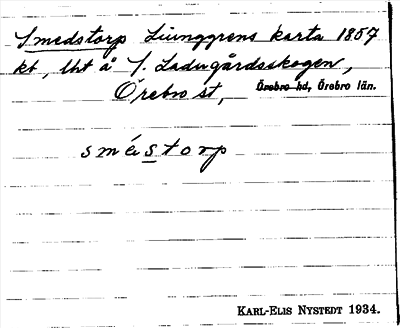 Smedstorp Liunggrens karta 1857
kt, lht å S. Ladugårdsskogen,
Örebro st, Örebro hd, Örebro län.
sméstorp
KARL-ELIS NYSTEDT 1934.